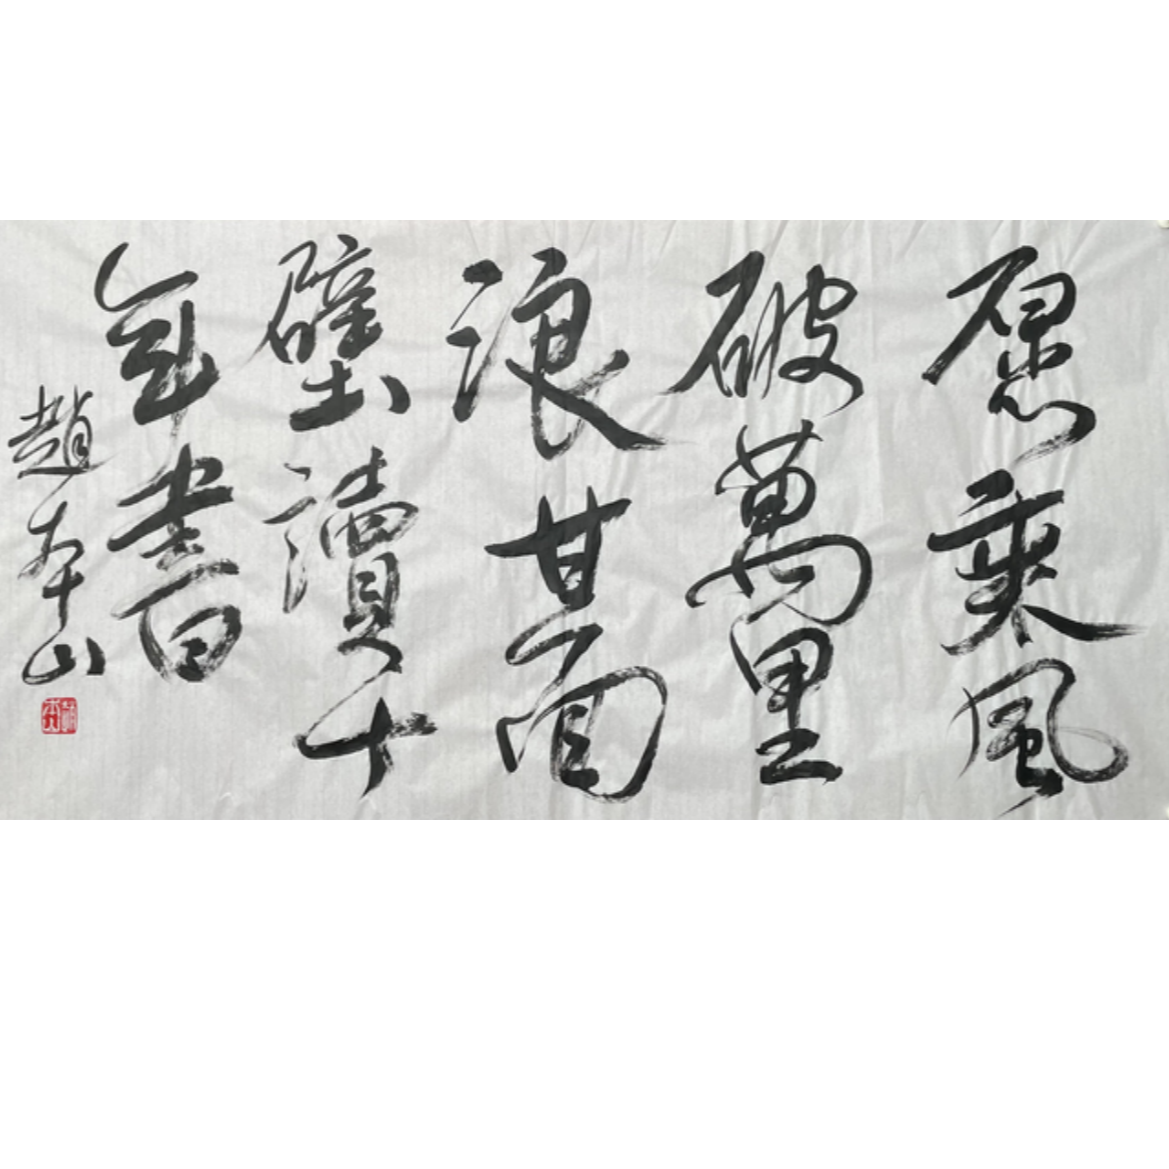 愿乘風
破萬里
浪甘面
壁讀十
年書
趙本山